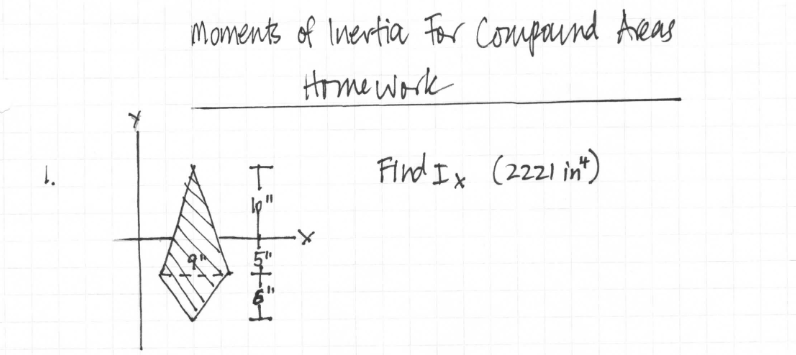 Moments of Inertia For Compound Areas
Homework
1.
Y
Find Ix (2221 in⁴)
10"
X
9"
5"
6"